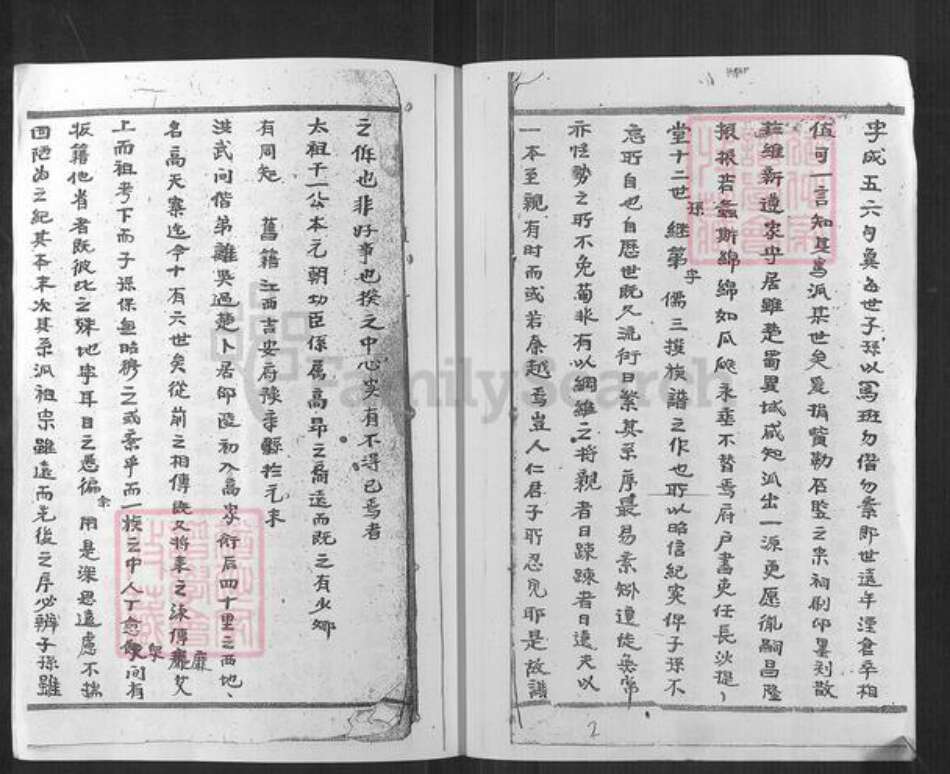 字成五六句奠為世子孫以為班勿借勿紊即世遠年湮倉卒相
值可一言知其為派某世矣爰捐貲勒石竪之宗祠刷印畧刻散
維新遵家乎居雖楚蜀異域咸知派出一源更愿徹嗣昌隆
振振若螽斯綿綿如瓜瓞永垂不替焉府户書吏任長沙堤
堂十二世孫継第字儒三撰族譜之作也所以昭信紀实俾子孫不
忘所自也自歴世既久流衍日繁其系序最易紊
亦性勢之所不免苟非有以綱維之将親者日踈踈者日遠夫以
一本至親有时而或若秦越焉豈人仁君子所忍見耶是故譜
之作也非好事也揆之中心实有不得已焉者
太祖干一公本元朝功臣係属高昂之裔遥而既之有少卿
有同知 舊籍江西吉安府豫章縣於元末
洪武间偕弟離吴過楚卜居邵陵初入高家衖后四十里之西地、
名高天寨迄今十有六世矣從前之相傳既又将来之
上而祖考下而子孫保無昭穆之或紊乎而一族之中人丁愈
板籍他省者既彼此之殊地寧耳目之愚徧余用是深思遠慮不揣
固陋為之紀其本末次其系派祖宗雖遠而先後之序必辨子孫雖
FamilySearch
2